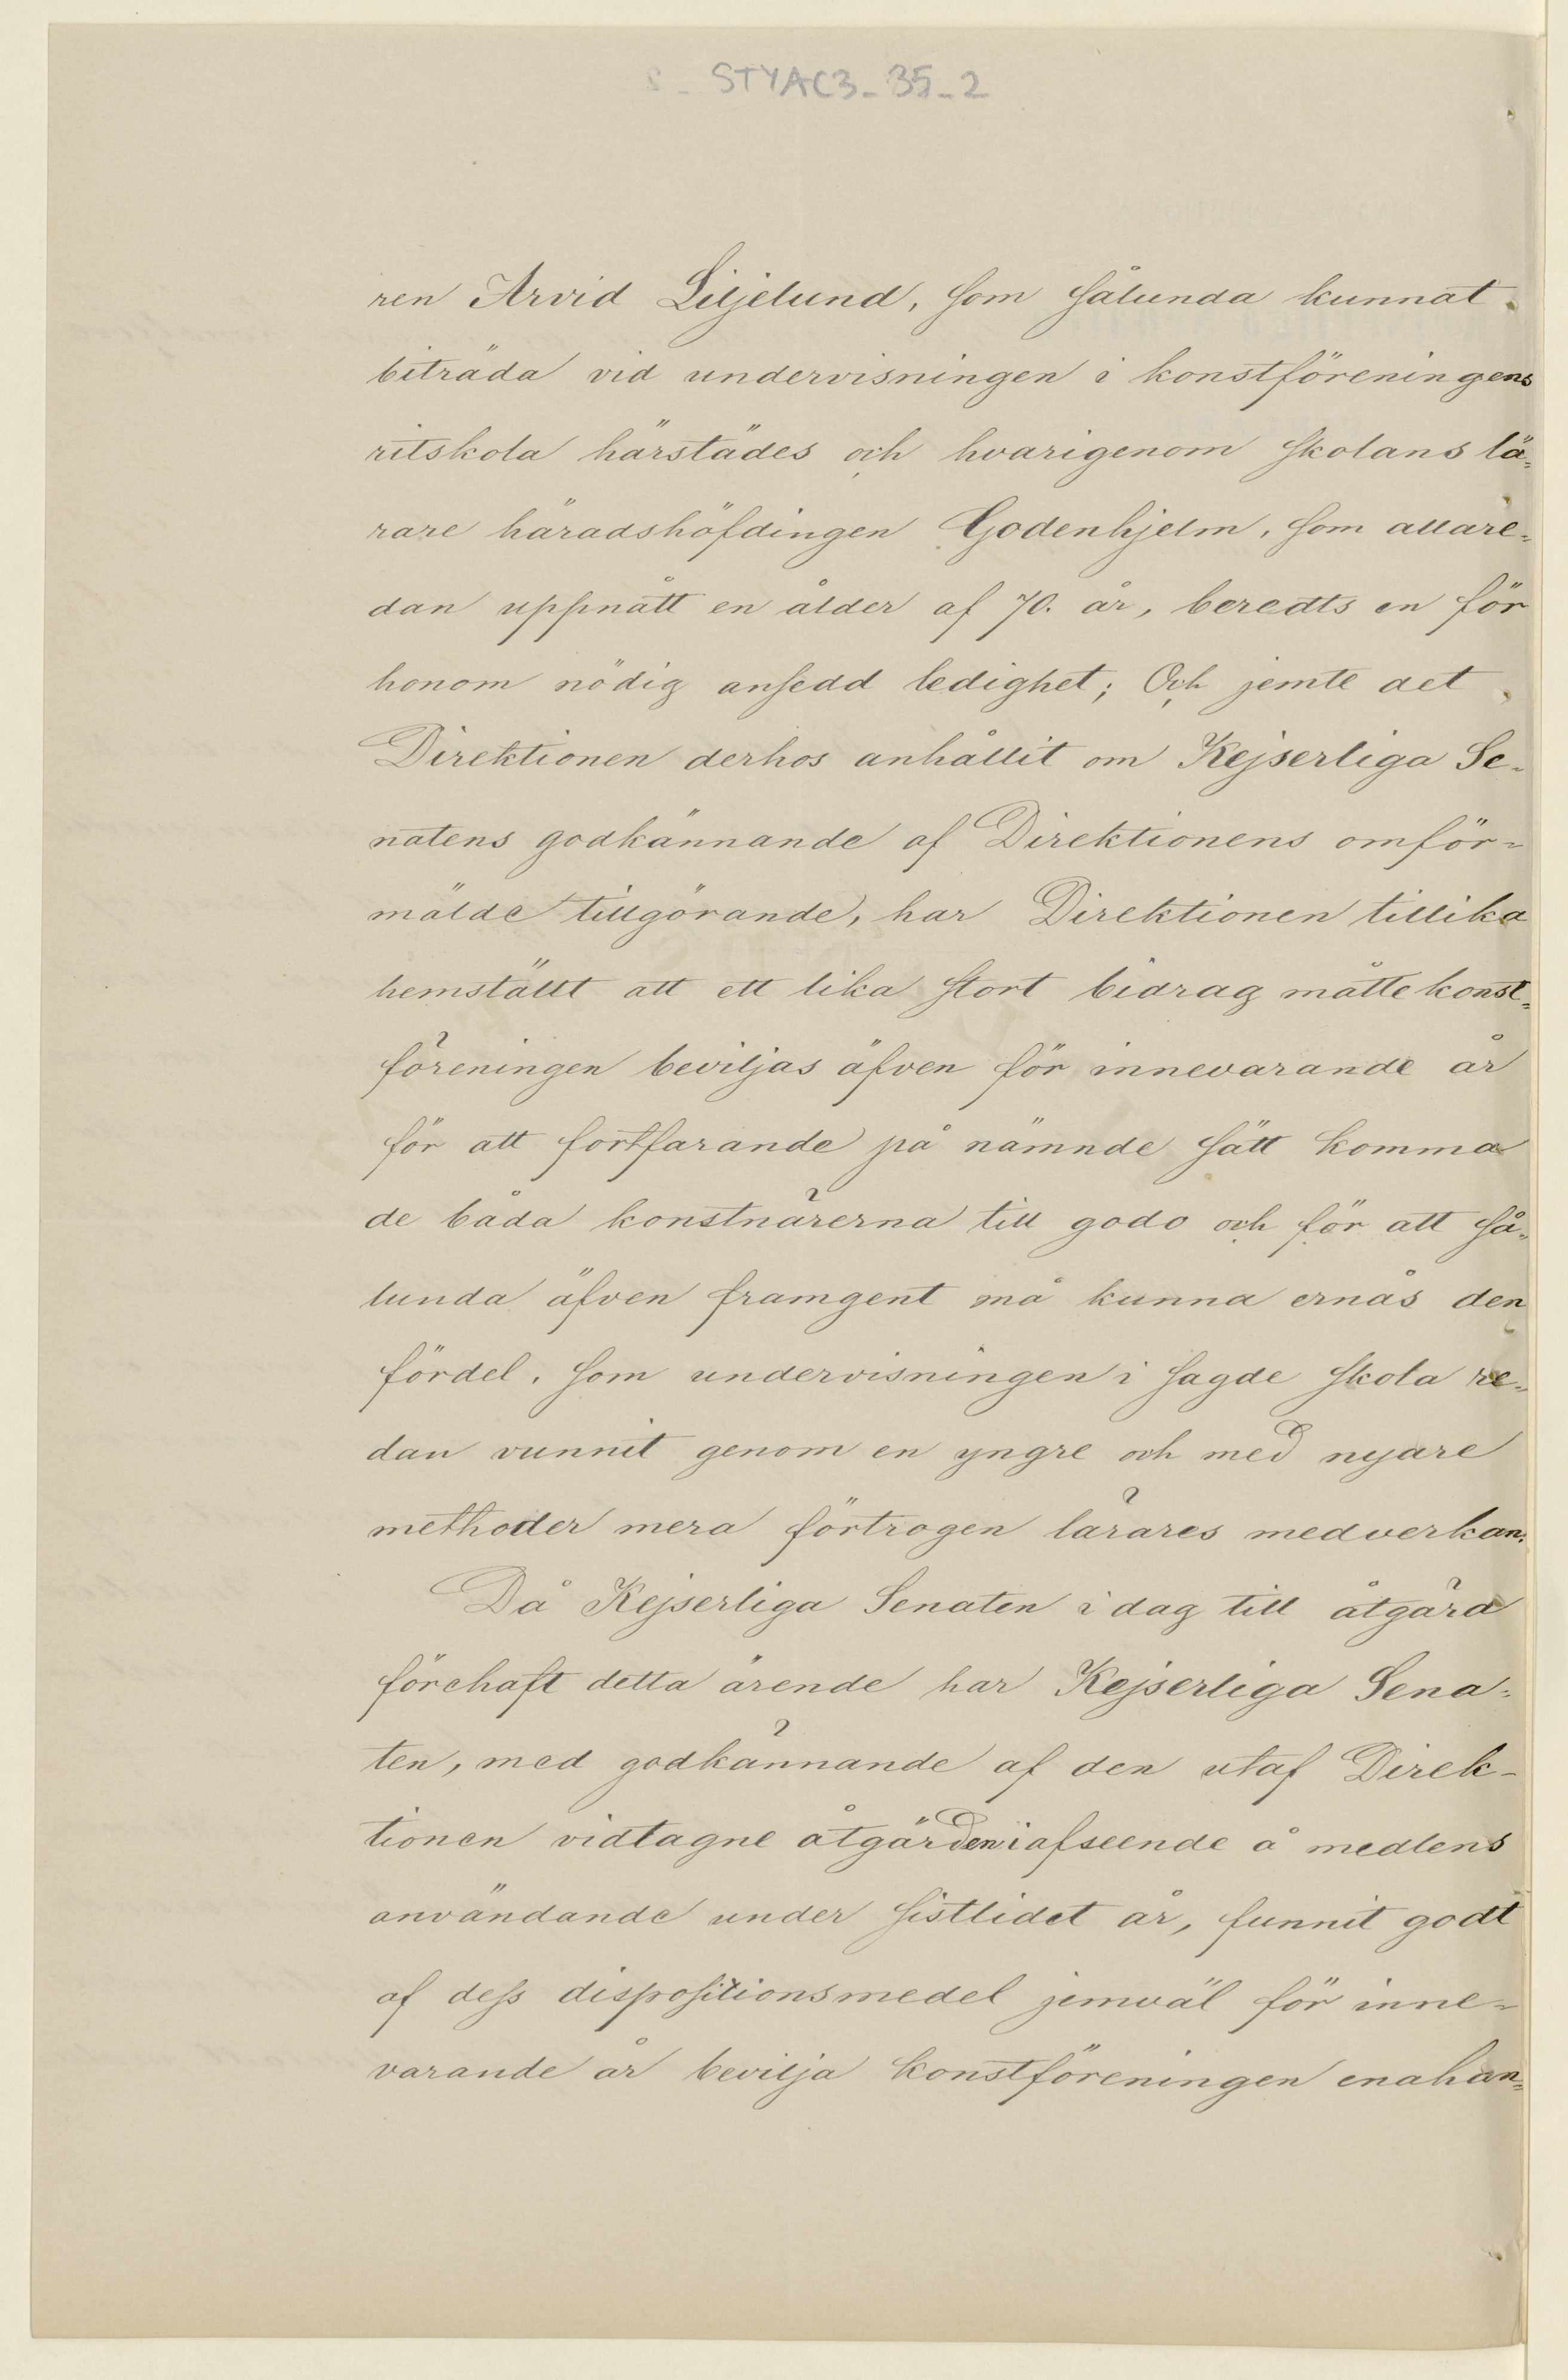 STYAC3_35_2
ren Arvid Liljelund, som sålunda kunnat
biträda vid undervisningen i konstföreningens
ritskola härstädes och hvarigenom skolans lä=
rare häradshöfdingen Godenhjelm, som allare=
dan uppnått en ålder af 70. år, beredts en för
honom nödig ansedd ledighet; Och jemte det
Direktionen derhos anhållit om Kejserliga Se=
natens godkännande af Direktionens omför=
mälde tillgörande, har Direktionen tillika
hemställt att ett lika stort bidrag måtte konst=
föreningen beviljas äfven för innevarande år
för att fortfarande på nämnde sätt komma
de båda konstnärerna till godo och för att så=
lunda äfven framgent må kunna ernås den
fördel, som undervisningen i sagde skola re=
dan vunnit genom en yngre och med nyare
methoder mera förtrogen lärares medverkan.
Då Kejserliga Senaten i dag till åtgärd
förehaft detta ärende har Kejserliga Sena=
ten, med godkännande af den utaf Direk-
tionen vidtagne åtgärden i afseende å medlens
användande under sistlidet år, funnit godt
af dess dispositionsmedel jemväl för inne=
varande år bevilja konstföreningen enahan=